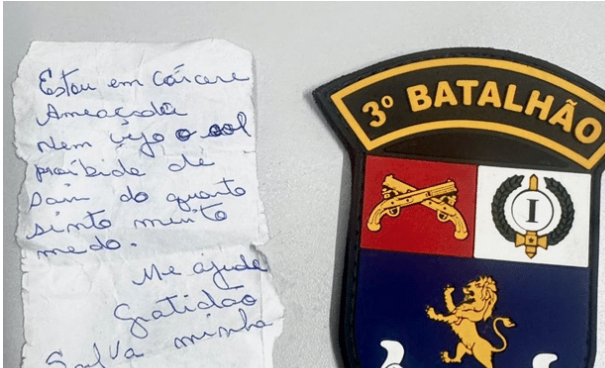 Estou em cárcere
Ameaçada
Nem vejo o sol
proibida de
sair do quarto
sinto muito
medo.
Me ajuda
Gratidão
Salva minha
3º BATALHÃO
I